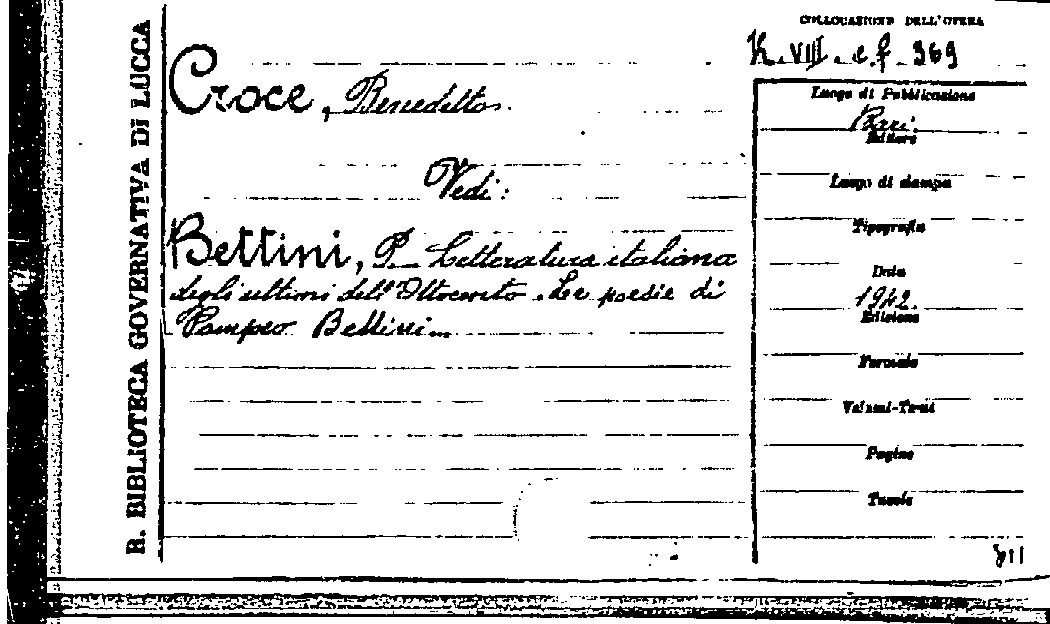 R. BIBLIOTECA GOVERNATIVA DI LUCCA
Croce, Benedetto.
Vedi:
Bettini, P. Letteratura italiana
degli ultimi dell'Ottocento. Le poesie di
Pompeo Bettini
COLLOCAZIONE DELL'OPERA
K. VIII. c.f. 369
Luogo di Pubblicazione
Bari.
Editore
Luogo di stampa
Tipografia
Data
1942.
Edizione
Formato
Volumi-Tomi
Pagine
Tavole